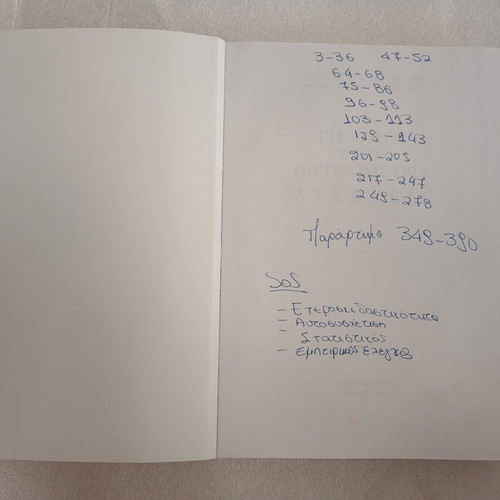 3-36 47-52
64-68
75-86
96-98
103-113
129-143
201-209
217-247
249-278
Παράρτημα 349-390
SoS
- Ετεροσκεδαστικότητα
- Αυτοσυσχέτιση
- Στατιστικός
- Εμπειρικός έλεγχος